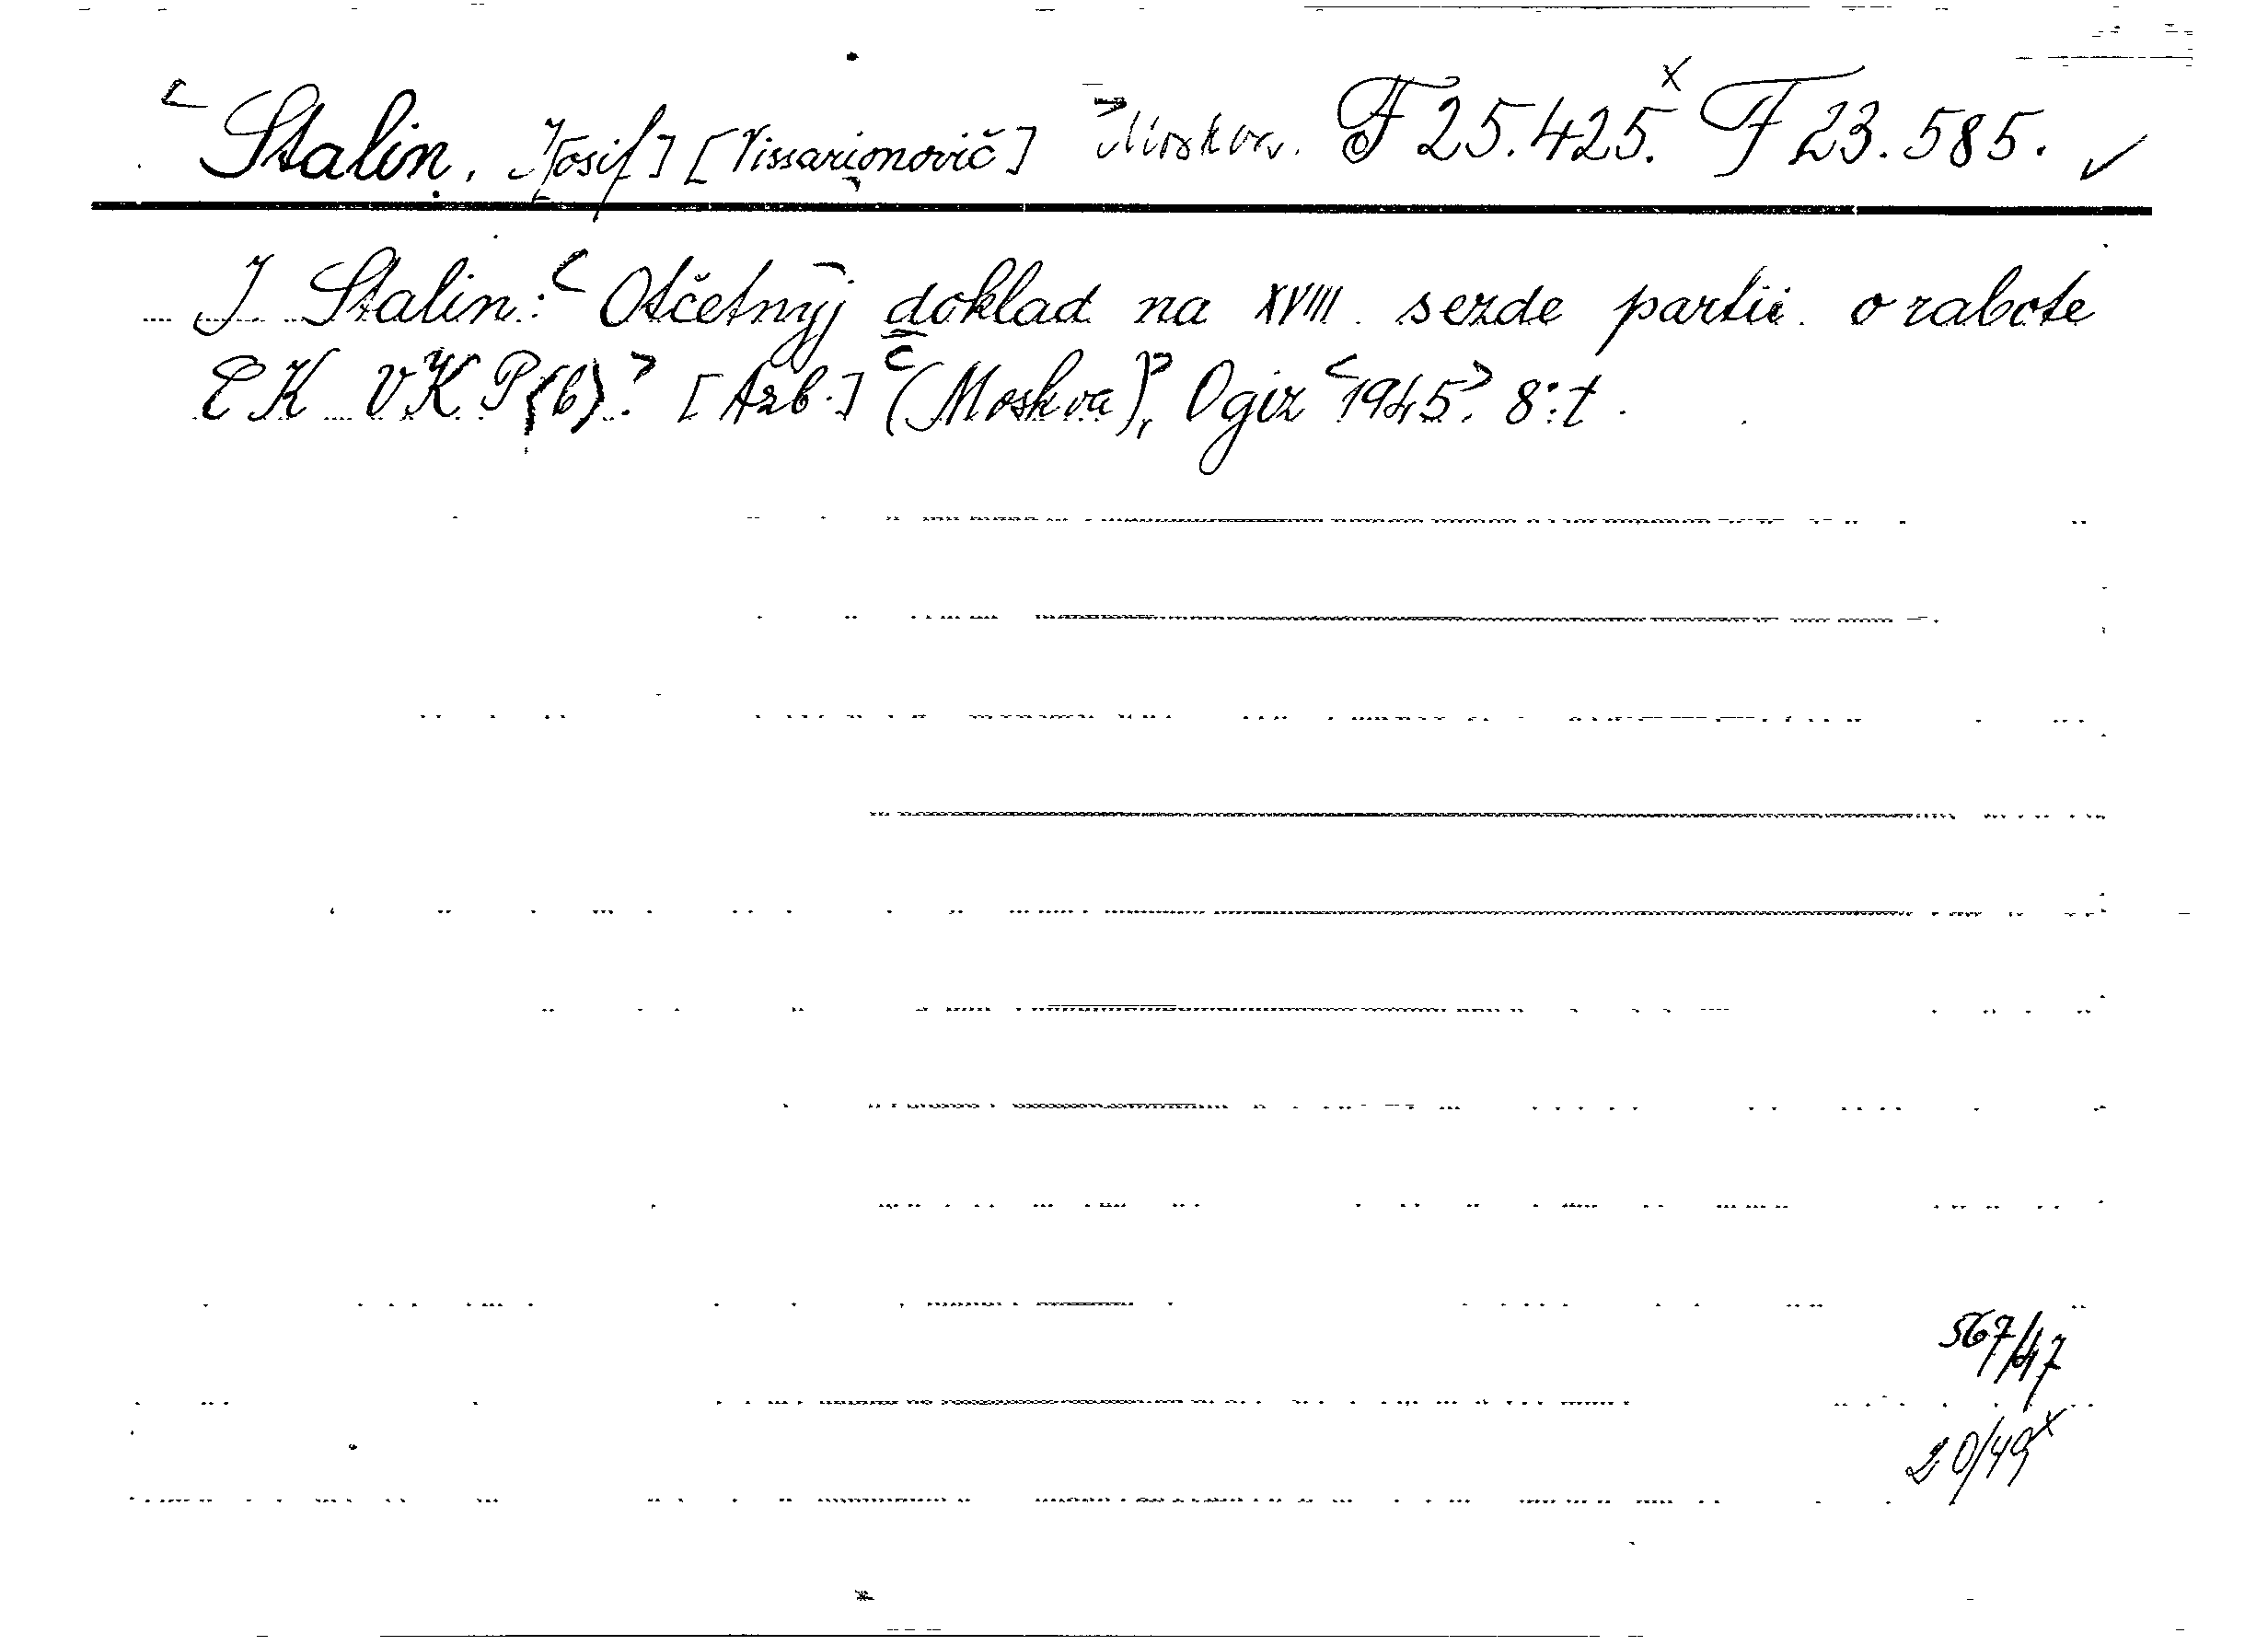 Stalin, J[osif] [Vissarionovič] Moskva. F 25.425.x F 23.585. ✓
J. Stalin: Otčetnyj doklad na XVIII. sezde partii o rabote
CK VKP(b). [Arb.] (Moskva), Ogiz 1945. 8:t.
567/47
20/49x